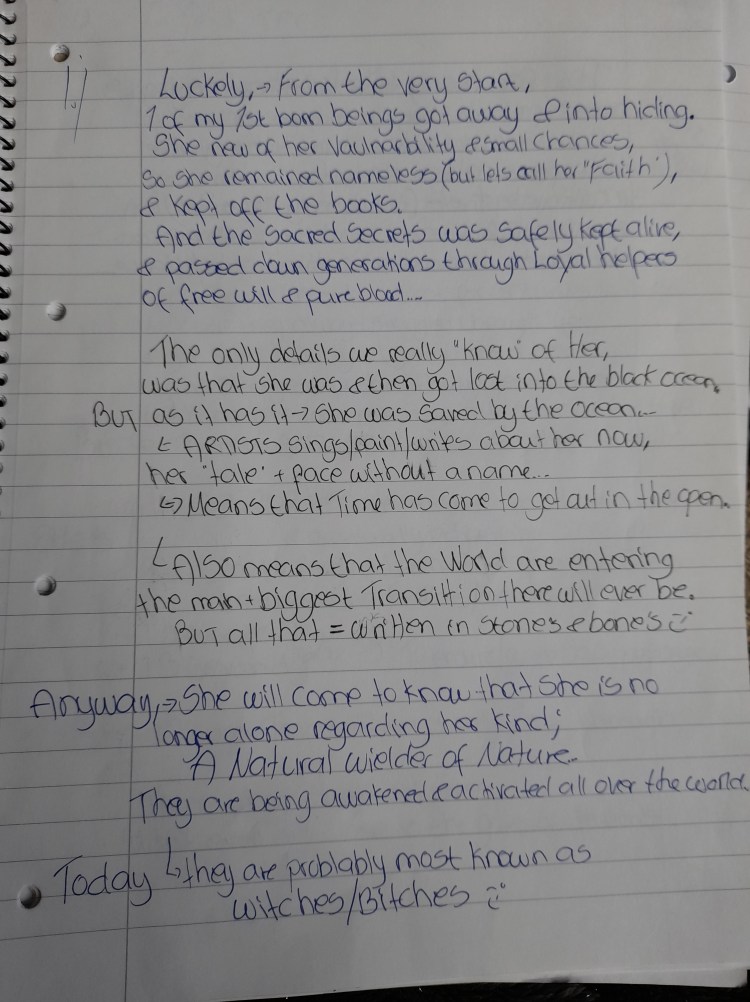 1)
Luckely, → From the very start,
1 of my 1st born beings got away & into hiding.
She new of her vaulnarbility & small chances,
So she remained nameless (but lets call her "Faith"),
& kept off the books.
And the sacred secrets was safely kept alive,
& passed down generations through Loyal helpers
of free will & pure blood...
The only details we really "know" of Her,
was that she was & then got lost into the black ocean,
BUT as it has it → she was saved by the ocean...
↳ ARTISTS sings/paint/writes about her now,
her 'tale' + face without a name...
↳ Means that Time has come to get out in the open.
↳ Also means that the World are entering
the main + biggest Transition there will ever be.
BUT all that = written in stones & bones :)
Anyway, → She will come to know that she is no
longer alone regarding her kind;
A Natural Wielder of Nature..
They are being awakened & activated all over the world.
Today ↳ they are problably most known as
witches/Bitches :)